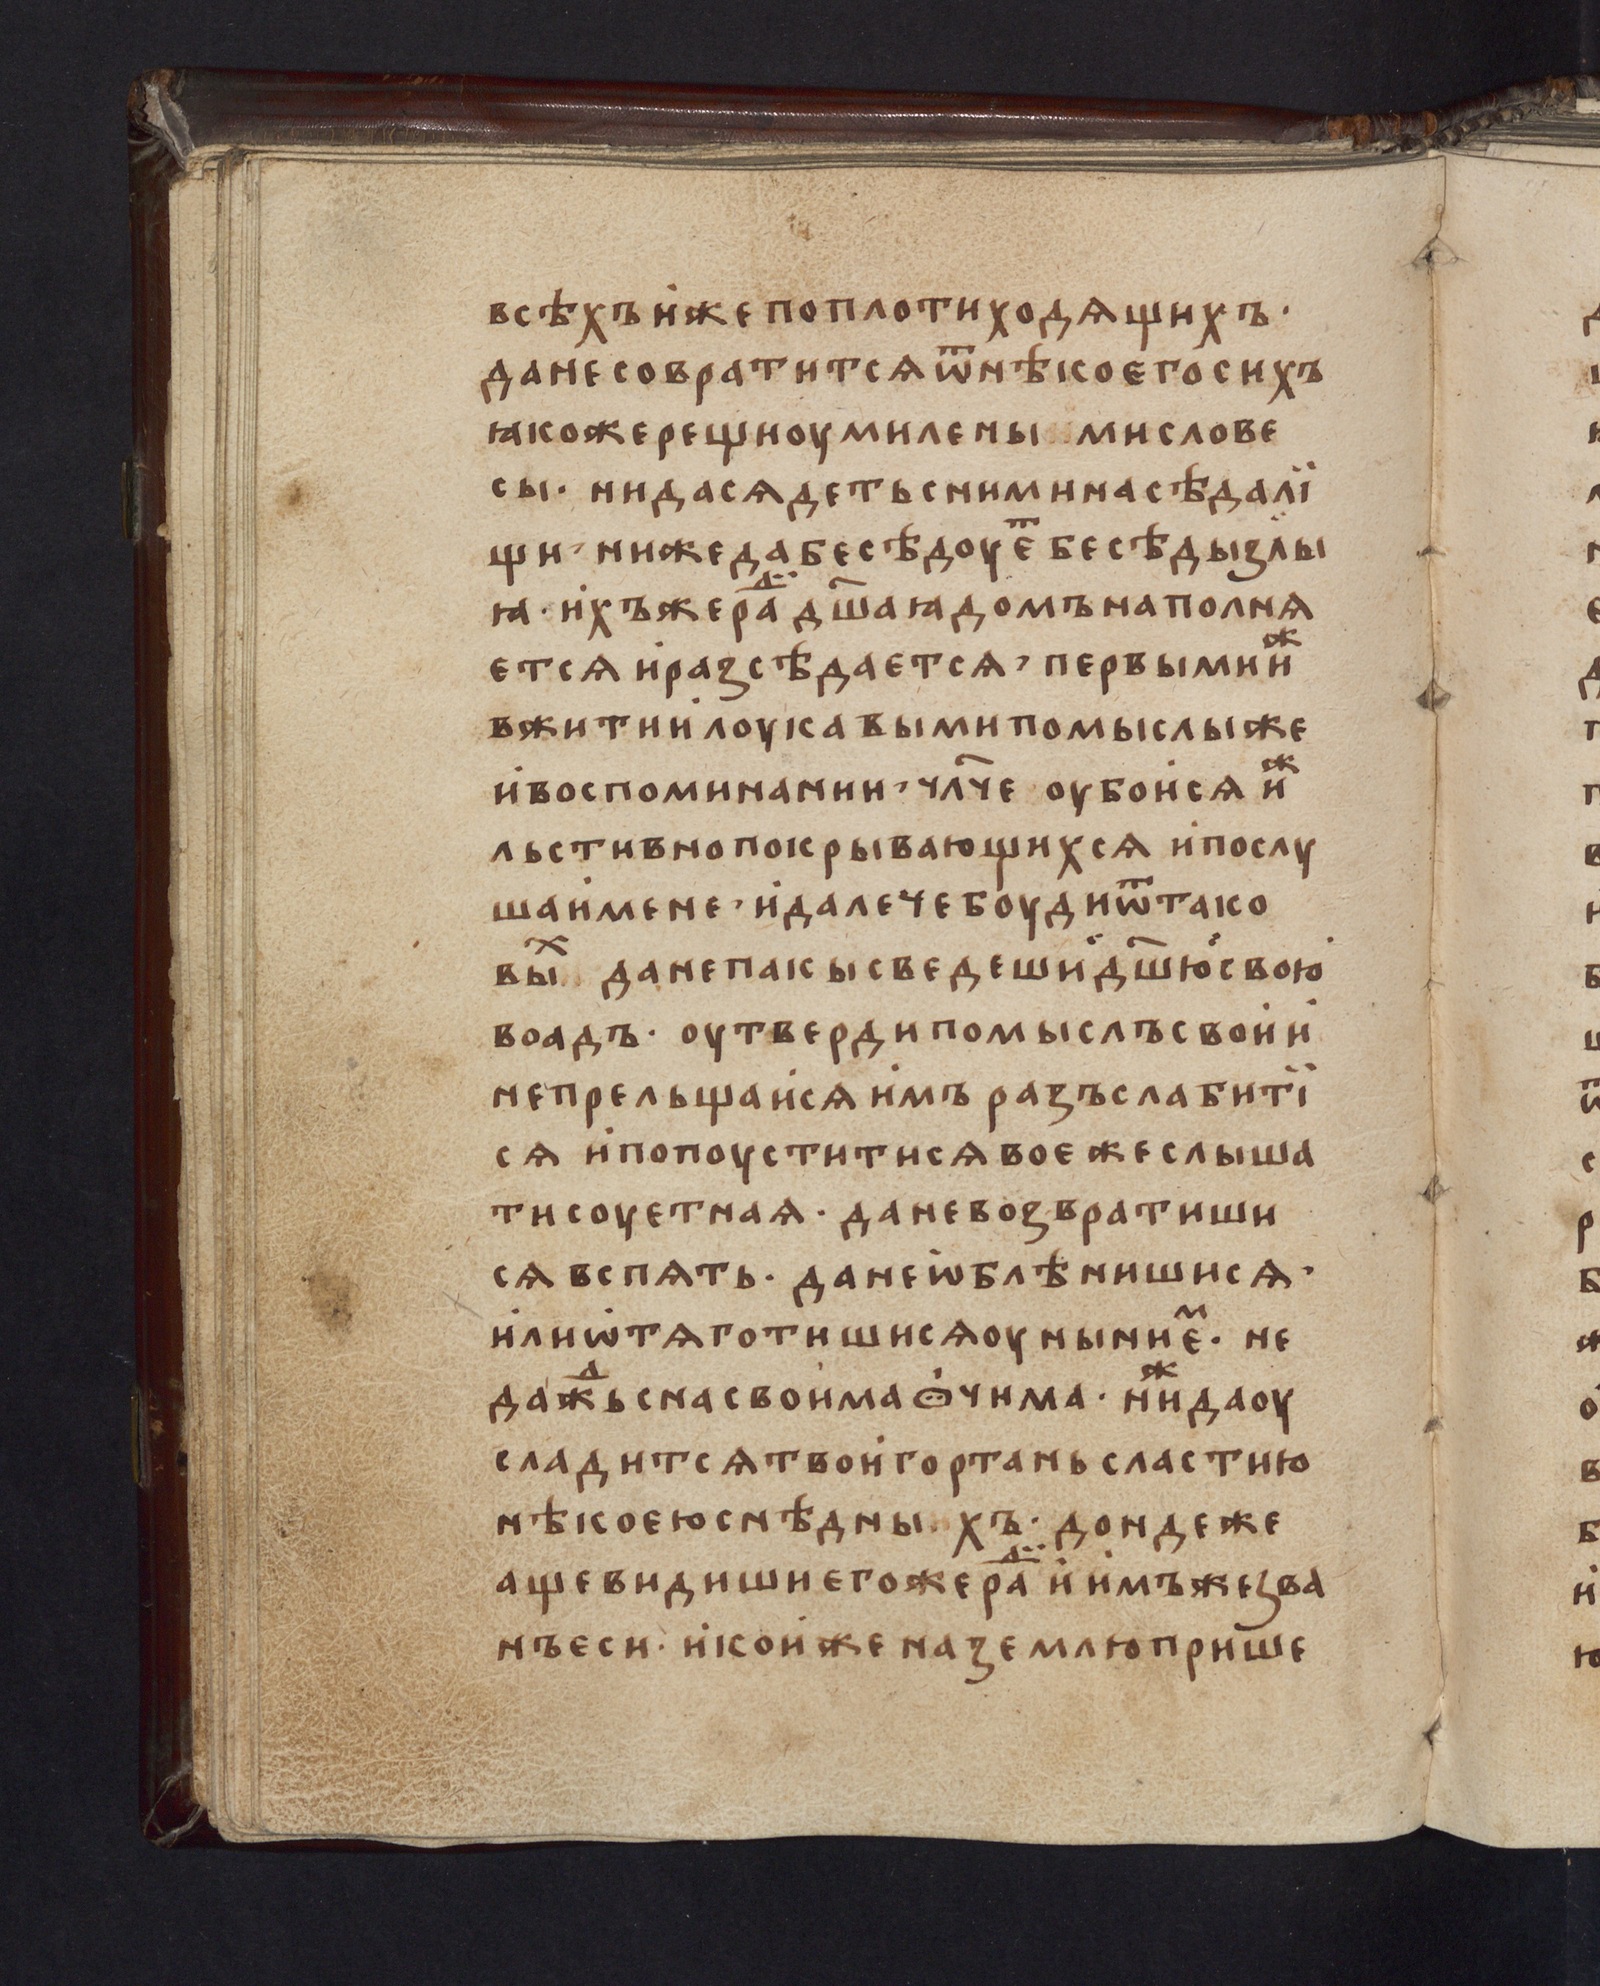 всѣхъи́жепоплотиходѧщихъ·
данесовратитсѧѿнѣкоегосихъ
ꙗкожерещиоумилены мислове
сы· нидасѧдетьсниминасѣдалї
щи· нижедабесѣдоуе҆ⷮ бесѣдыꙁлы
ꙗ· и́хъжераⷣ дш҃аꙗдомънаполнѧ
етсѧи́раꙁсѣдаетсѧ· первымииⷤ
вжитии́лоукавымипомыслыже
и́воспоминании· чл҃че оубои́сѧ иⷤ
льстивнопокрывающихсѧ и́послꙋ
шаи́мене· и́далечебоудиѿтако
выⷯ данепакысведешии́дш҃ю́свою
воадъ· оутвердипомыслъсвои́и́
непрельщаи́сѧи́мъ раꙁъслабитї
сѧ и́попоуститисѧвоежеслыша
тисоуетнаѧ· даневоꙁвратиши
сѧвспѧть· данеѡ́блѣнишисѧ·
и́лиѡ́тѧготишисѧоуныниеⷨ· не
даⷣжьснасвои́маꙫчима· ниⷤидаоу
сладитсѧтвои́гортаньсластию
нѣкоеюснѣдны хъ· дондеже
ащевидишиегожераⷣ и́ и́мъжеꙁва
нъеси· и́кои́женаꙁемлюприше